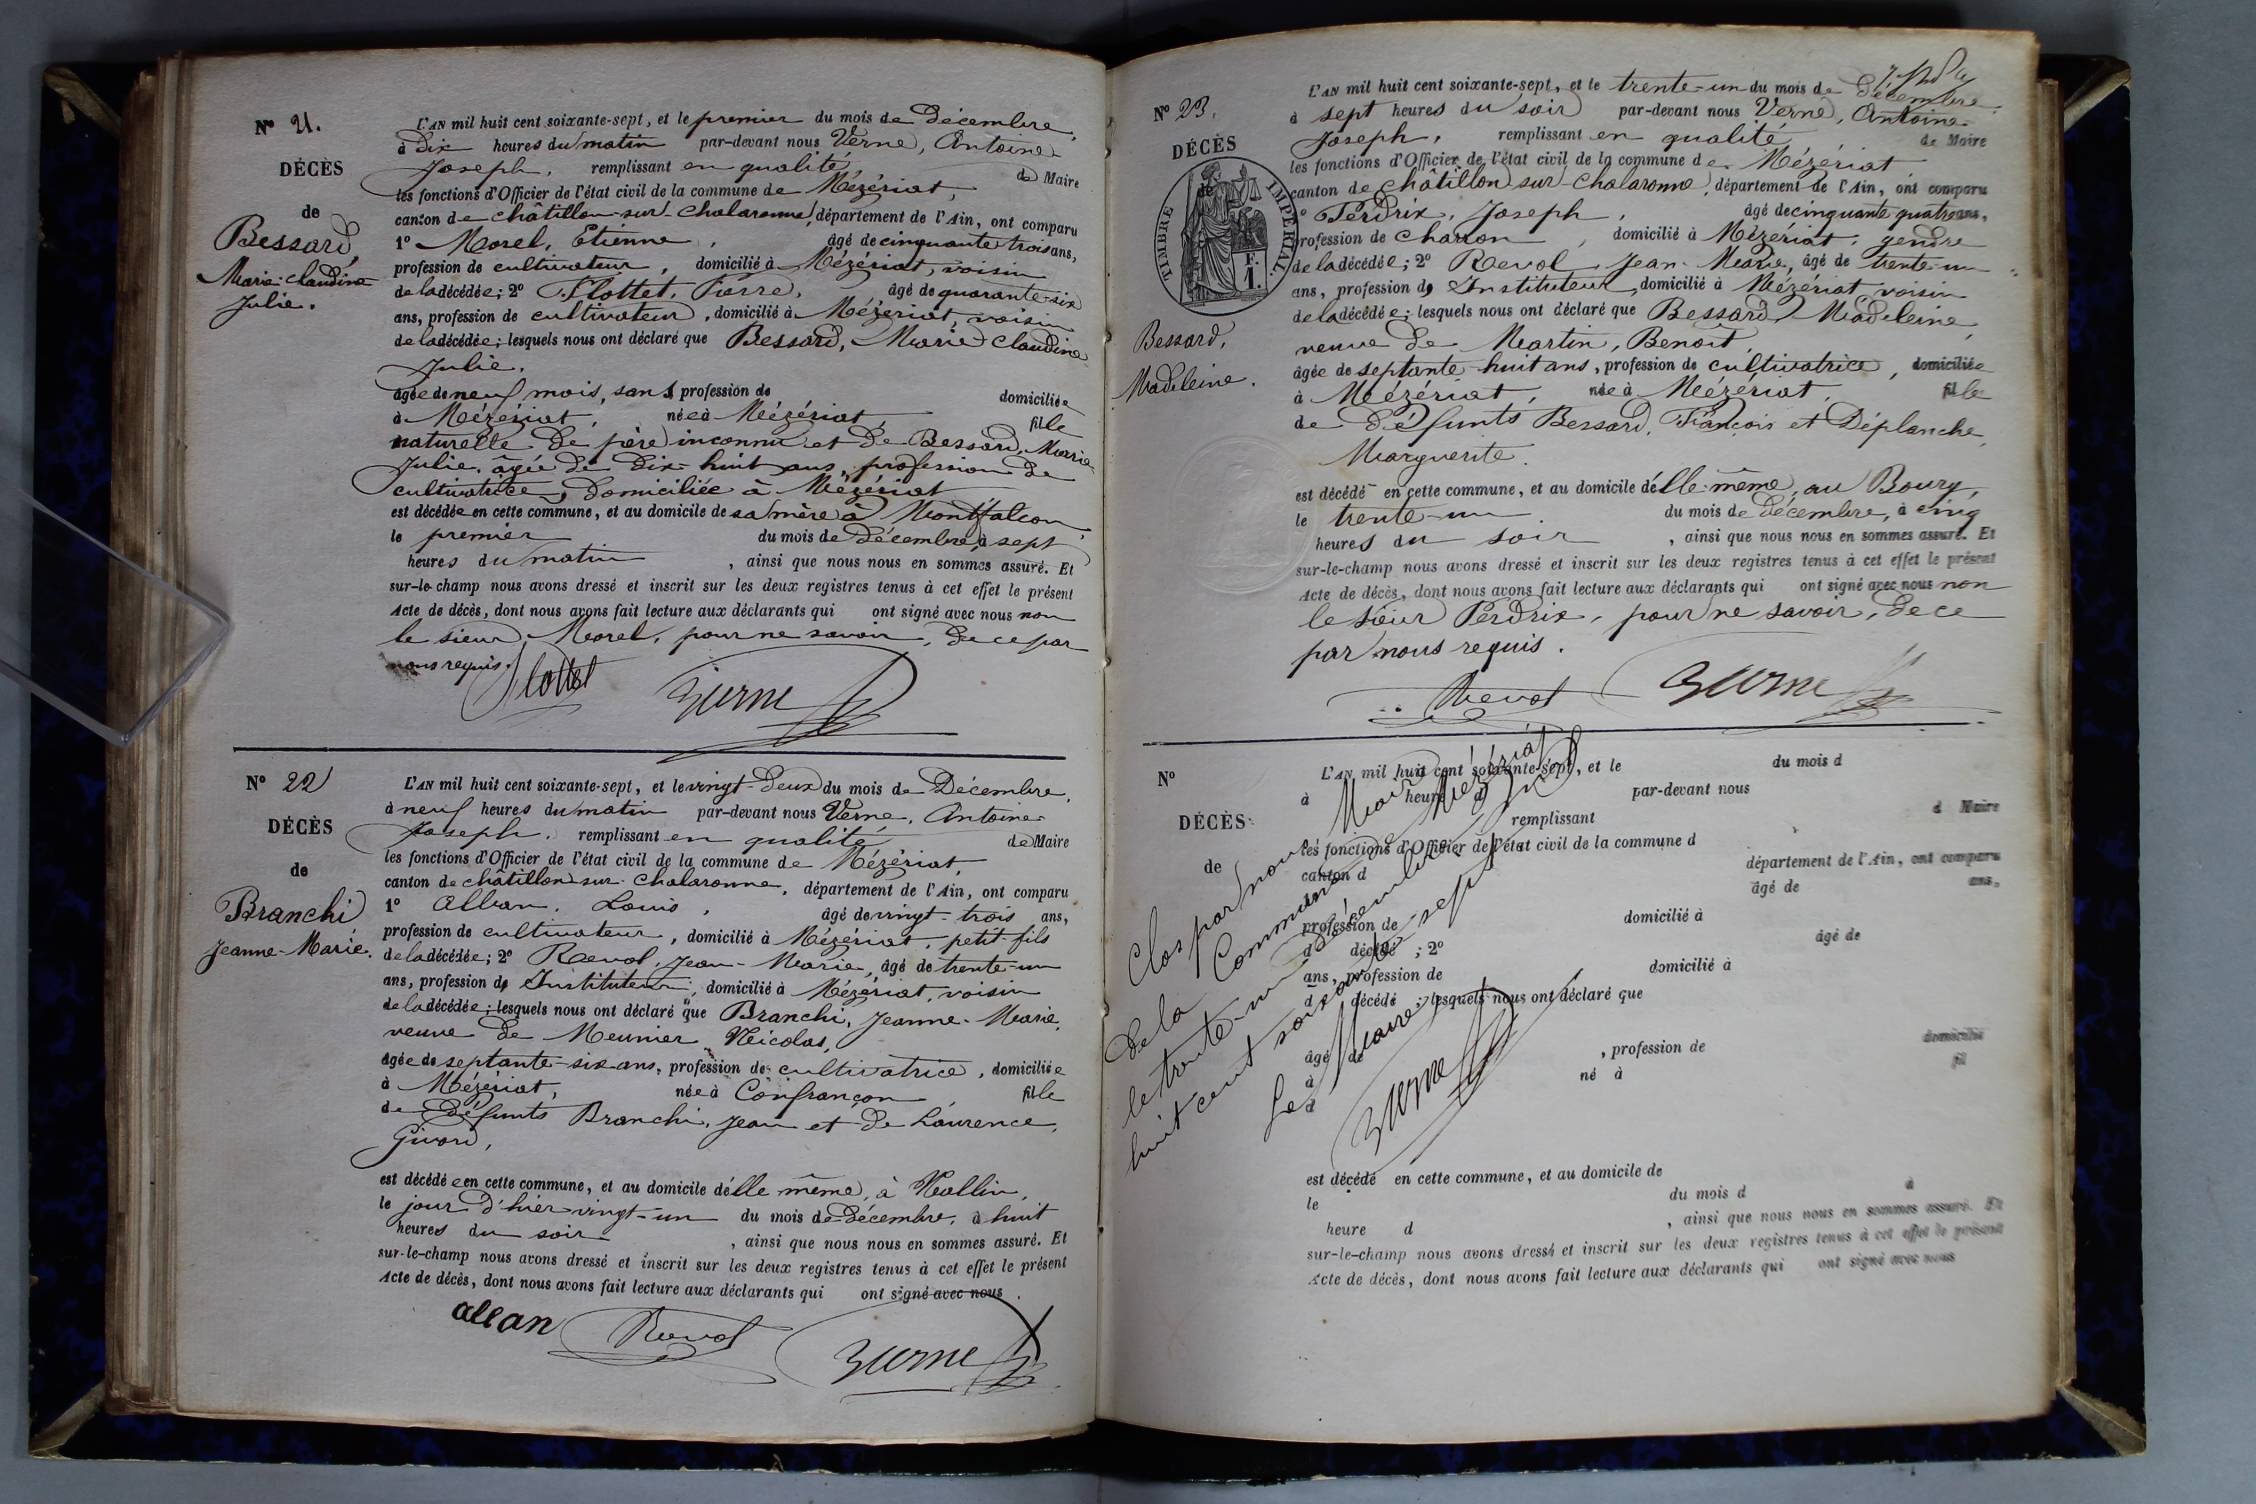 N° 21.
DÉCÈS
de
Bessard,
Marie-Claudine
Julie.
L'AN mil huit cent soixante-sept, et le premier du mois de Décembre,
à dix heures du matin par-devant nous Verne, Antoine-
Joseph, remplissant en qualité de Maire
les fonctions d'Officier de l'état civil de la commune de Mézériat,
canton de Châtillon-sur-Chalaronne, département de l'Ain, ont comparu
1° Morel, Etienne, âgé de cinquante trois ans,
profession de cultivateur, domicilié à Mézériat, voisin
de la décédée; 2° Flottet, Pierre, âgé de quarante-six
ans, profession de cultivateur, domicilié à Mézériat, voisin
de la décédée; lesquels nous ont déclaré que Bessard, Marie-Claudine
Julie,
âgée de neuf mois, sans profession de domiciliée
à Mézériat, née à Mézériat, fille
naturelle de père inconnu et de Bessard, Marie-
Julie, âgée de dix-huit ans, profession de
cultivatrice, domiciliée à Mézériat
est décédée en cette commune, et au domicile de sa mère à Montfalcon,
le premier du mois de Décembre, à sept
heures du matin, ainsi que nous nous en sommes assuré. Et
sur-le-champ nous avons dressé et inscrit sur les deux registres tenus à cet effet le présent
Acte de décès, dont nous avons fait lecture aux déclarants qui ont signé avec nous non
le sieur Morel, pour ne savoir, de ce par
nous requis.
Flottet Verne
N° 22
DÉCÈS
de
Branchi
Jeanne-Marie.
L'AN mil huit cent soixante-sept, et le vingt-deux du mois de Décembre,
à neuf heures du matin par-devant nous Verne, Antoine-
Joseph, remplissant en qualité de Maire
les fonctions d'Officier de l'état civil de la commune de Mézériat,
canton de Châtillon-sur-Chalaronne, département de l'Ain, ont comparu
1° Alban, Louis, âgé de vingt-trois ans,
profession de cultivateur, domicilié à Mézériat, petit-fils
de la décédée; 2° Revol, Jean-Marie, âgé de trente-un
ans, profession d'Instituteur, domicilié à Mézériat, voisin
de la décédée; lesquels nous ont déclaré que Branchi, Jeanne-Marie,
veuve de Meunier Nicolas,
âgée de septante-six ans, profession de cultivatrice, domiciliée
à Mézériat, née à Confrançon fille
de défunts Branchi, Jean et de Laurence,
Givord,
est décédée en cette commune, et au domicile d'elle même, à Mollin,
le jour d'hier vingt-un du mois de Décembre, à huit
heures du soir, ainsi que nous nous en sommes assuré. Et
sur-le-champ nous avons dressé et inscrit sur les deux registres tenus à cet effet le présent
Acte de décès, dont nous avons fait lecture aux déclarants qui ont signé avec nous.
Revol Verne
N° 23.
DÉCÈS
de
TIMBRE IMPÉRIAL.
F. 1.
Bessard,
Madeleine.
L'AN mil huit cent soixante-sept, et le trente-un du mois de Décembre
à sept heures du soir par-devant nous Verne, Antoine-
Joseph, remplissant en qualité de Maire
les fonctions d'Officier de l'état civil de la commune de Mézériat
canton de Châtillon-sur-Chalaronne, département de l'Ain, ont comparu
1° Perdrix, Joseph, âgé de cinquante quatre ans,
profession de charron, domicilié à Mézériat, gendre
de la décédée; 2° Revol Jean-Marie, âgé de trente-un
ans, profession d'Instituteur, domicilié à Mézériat, voisin
de la décédée; lesquels nous ont déclaré que Bessard Madeleine,
veuve de Martin, Benoît,
âgée de septante-huit ans, profession de cultivatrice, domiciliée
à Mézériat, née à Mézériat, fille
de défunts Bessard, François et Déplanche,
Marguerite.
est décédé en cette commune, et au domicile d'elle-même, au Bourg,
le trente-un du mois de Décembre, à cinq
heures du soir, ainsi que nous nous en sommes assuré. Et
sur-le-champ nous avons dressé et inscrit sur les deux registres tenus à cet effet le présent
Acte de décès, dont nous avons fait lecture aux déclarants qui ont signé avec nous non
le sieur Perdrix, pour ne savoir, de ce
par nous requis.
Revol Verne
N°
DÉCÈS
de
L'AN mil huit cent soixante-sept, et le du mois d
à heure d par-devant nous
remplissant d Maire
les fonctions d'Officier de l'état civil de la commune d
canton d département de l'Ain, ont comparu
âgé de ans,
profession de domicilié à
d décédé ; 2° âgé de
ans, profession de domicilié à
d décédé ; lesquels nous ont déclaré que
âgé de , profession de domicilié
à né à fil
d
est décédé en cette commune, et au domicile de
le du mois d à
heure d , ainsi que nous nous en sommes assuré. Et
sur-le-champ nous avons dressé et inscrit sur les deux registres tenus à cet effet le présent
Acte de décès, dont nous avons fait lecture aux déclarants qui ont signé avec nous
Clos par nous Maire
de la Commune de Mézériat
le trente-un décembre mil
huit cent soixante-sept
Le Maire
Verne